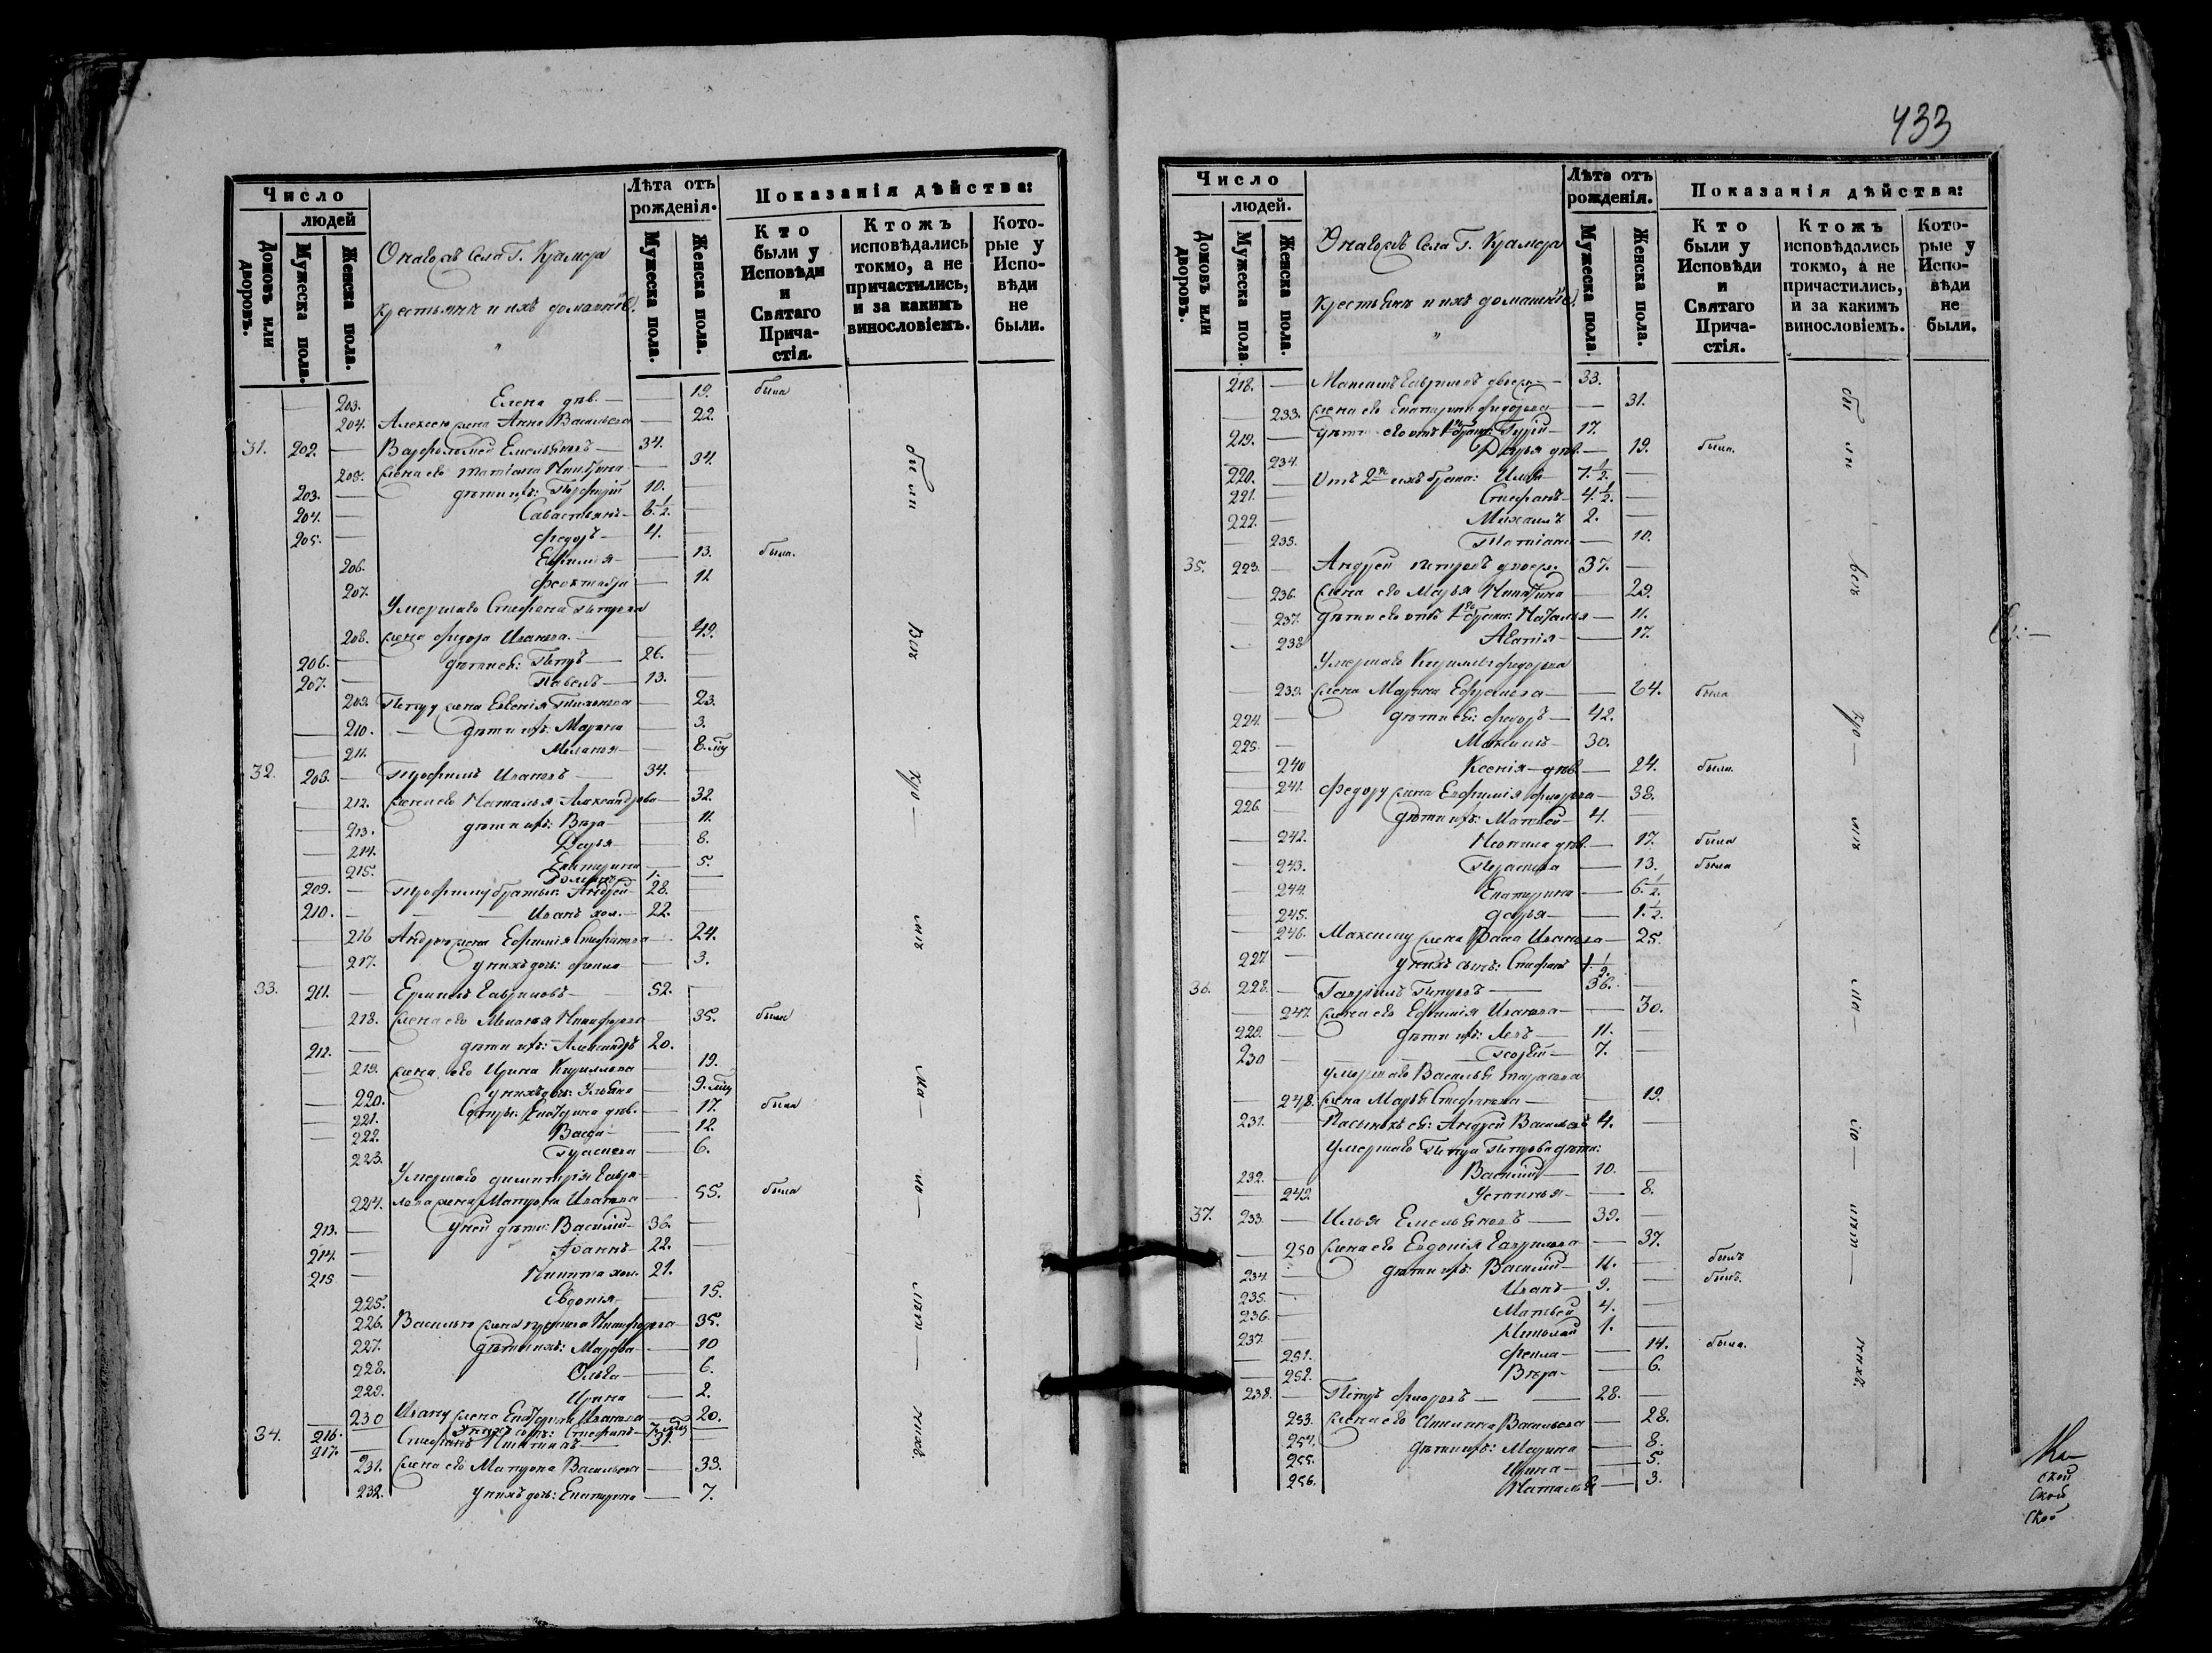 433
Число
людей
Домовъ или дворовъ.
Мужеска пола.
Женска пола.
села Г. Крамера
Крестьяне и ихъ домашніе.
Лѣта отъ рожденія.
Мужеска пола.
Женска пола.
Показанія дѣйства:
Кто были у Исповѣди и Святаго Причастія.
Ктожъ исповѣдались токмо, а не причастились, и за какимъ винословіемъ.
Которые у Исповѣди не были.
203. Елена дѣв. — 19. была
204. Алексею жена Анна Васильева — 22.
31. 202. — Варфоломей Емельяновъ — 34.
205. жена его Татіана Никитина — 34.
203. — дѣти ихъ: Порфирій 10.
204. — Савастьянъ — 6 ½.
205. — Федоръ — 4.
206. Ефимія — 13. была.
207. Феоктиста — 11
Умершаго Стефана Петрова
208. жена Федора Иванова. — 49.
206. — дѣти ея: Петръ — 26.
207. — Павелъ — 13.
209. Петру жена Евгенія — 23.
210. — дѣти ихъ: Марина — 3.
211. Меланья — 8.
32. 208. — Трофимъ Ивановъ — 34.
212. жена его Наталья Александрова — 32.
213. дѣти ихъ: Вѣра — 11.
214. Дарья — 8.
215. Екатерина — 5.
1.
209. — Трофиму братья: Андрей — 28.
210. — Иванъ хол. — 22.
216 Андрею жена Ефимія Стефанова — 24.
217. у нихъ дочь: Фекла — 3.
33. 211. — Ермилъ Гавриловъ — 52.
218. жена его Меланья Никифорова — 35. была
212. — дѣти ихъ: Александръ 20.
219. жена его Ирина Кириллова — 19.
220. у нихъ дочь: Ульяна — 9.
221. Сестры: Екатерина дѣв. — 17. была
222. Васса — 12.
223. Праскева — 6.
Умершаго Димитрія Гаври-
224. лова жена Матрона Иванова — 55. была
213. — у ней дѣти: Василій — 36.
214. — Іоаннъ — 22.
215 — Никита хол. 21.
225. Евдокія — 15.
226. Василью жена Никифорова — 35.
227. дѣти ихъ: Марфа — 10
228. Ольга — 6.
229. Ирина — 2.
230 Ивану жена Екатерина Иванова — 20.
216. — у нихъ сынъ: Стефанъ — 7.
34. 217. — Стефанъ Никитинъ — 31.
231. жена его Матрона Васильева — 33.
232. у нихъ дочь: Екатерина — 7.
Число
людей.
Домовъ или дворовъ.
Мужеска пола.
Женска пола.
села Г. Крамера
Крестьяне и ихъ домашніе.
Лѣта отъ рожденія.
Мужеска пола.
Женска пола.
Показанія дѣйства:
Кто были у Исповѣди и Святаго Причастія.
Ктожъ исповѣдались токмо, а не причастились, и за какимъ винословіемъ.
Которые у Исповѣди не были.
218. — Максимъ Гавриловъ — 33.
233. жена его Екатерина Федорова — 31.
219. — дѣти его отъ 1го брака: Гурій — 17.
234. Дарья дѣв. — 19. была.
220. — Отъ 2го ихъ брака: Илья 7 ½.
221. — Стефанъ — 4 ½.
222. — Михаилъ 2.
235. Татіана — 10.
35. 223. — Андрей Петровъ 37.
236. жена его Марья Никитина — 29.
237. дѣти его отъ 1го брака: Наталья — 11.
238 Агапія — 17.
Умершаго Кирилы Федорова
239. жена Марина — 64. была
224. — дѣти ея: Федоръ — 42.
225. — Максимъ — 30.
240 Ксенія — дѣв. — 24. была.
241. Федору жена Евфимія — 38.
226. — дѣти ихъ: Матвей — 4.
242. Неонила дѣв. — 17. была
243. Праскева — 13. была
244. Екатерина — 6 ½.
245. Дарья — 1 ½.
246. Максиму жена Иванова — 25.
227. — у нихъ сынъ: Стефанъ 1 ½.
36. 228. — Гавріилъ Петровъ — 36.
247. жена его Ефимія Иванова — 30.
229. — дѣти ихъ: Левъ — 11.
230 — Георгій — 7.
Умершаго Василья Тарасова
248. жена Марья Стефанова — 19.
231. — Пасынокъ ея: Андрей Васильевъ 4.
Умершаго Петра Петрова дѣти:
232. — Василій — 10.
249. Устинья — 8.
37. 233. — Илья Емельяновъ — 39.
250 жена его Евдокія Гаврилова — 37.
234. — дѣти ихъ: Василій — 11. былъ
235. — Иванъ — 9. былъ.
236. — Матвей 4.
237. — Николай 1.
251. Фекла — 14. была.
252. Вѣра — 6.
238. — Петръ Федоровъ — 28.
253. жена его Васильева — 28.
254. дѣти ихъ: Марина — 8.
255. Ирина — 5.
256. Наталья — 3.
ской
ской
ской